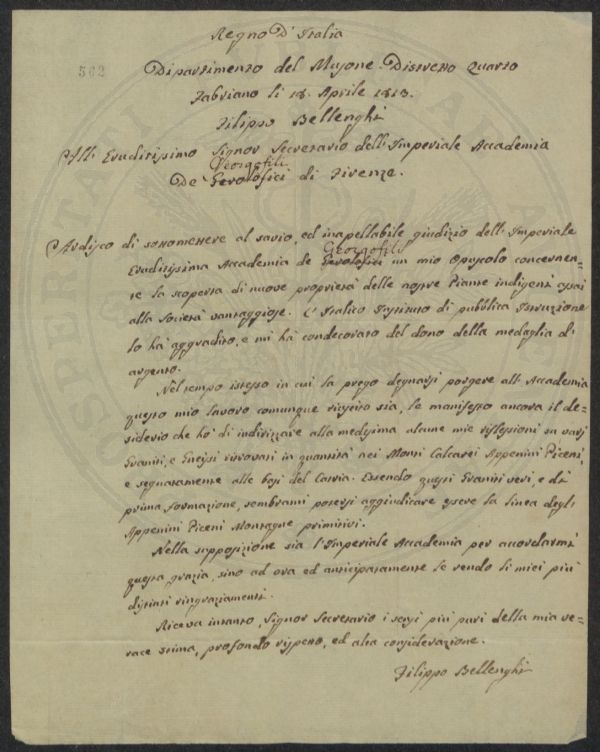 Regno D'Italia
502
Dipartimento del Musone. Distretto Quarto
Fabriano li 18. Aprile 1813.
Filippo Bellenghi
All' Eruditissimo Signor Secretario dell'Imperiale Accademia
Georgofili
De' Gerolofici di Firenze.
Ardisco di sottomettere al savio, ed inapellabile giudizio dell'Imperiale
Georgofili
Eruditissima Accademia de Gerolofici un mio Opuscolo concernen=
te la scoperta di nuove proprietà delle nostre Piante indigeni assai
alla Società vantaggiose. L'Italico Istituto di pubblica Istruzione
lo hà aggradito, e mi hà condecorato del dono della medaglia di
argento.
Nel tempo istesso in cui la prego degnarsi porgere all'Accademia
questo mio lavoro comunque riescito sia, le manifesto ancora il de=
siderio che hò di indirizzare alla medesima alcune mie riflessioni su varj
Graniti, e Gneisi ritrovati in quantità nei Monti Calcarei Appenini Piceni,
e segnatamente alle basi del Catria. Essendo questi Graniti veri, e di
prima formazione, sembrami potersi aggiudicare essere la linea degli
Appenini Piceni Montagne primitivi.
Nella supposizione sia l'Imperiale Accademia per accordarmi
questa grazia, sino ad ora ed anticipatamente le rendo li miei più
distinti ringraziamenti.
Riceva intanto, Signor Secretario i sensi più puri della mia ve=
race stima, profondo rispetto, ed alta considerazione.
Filippo Bellenghi